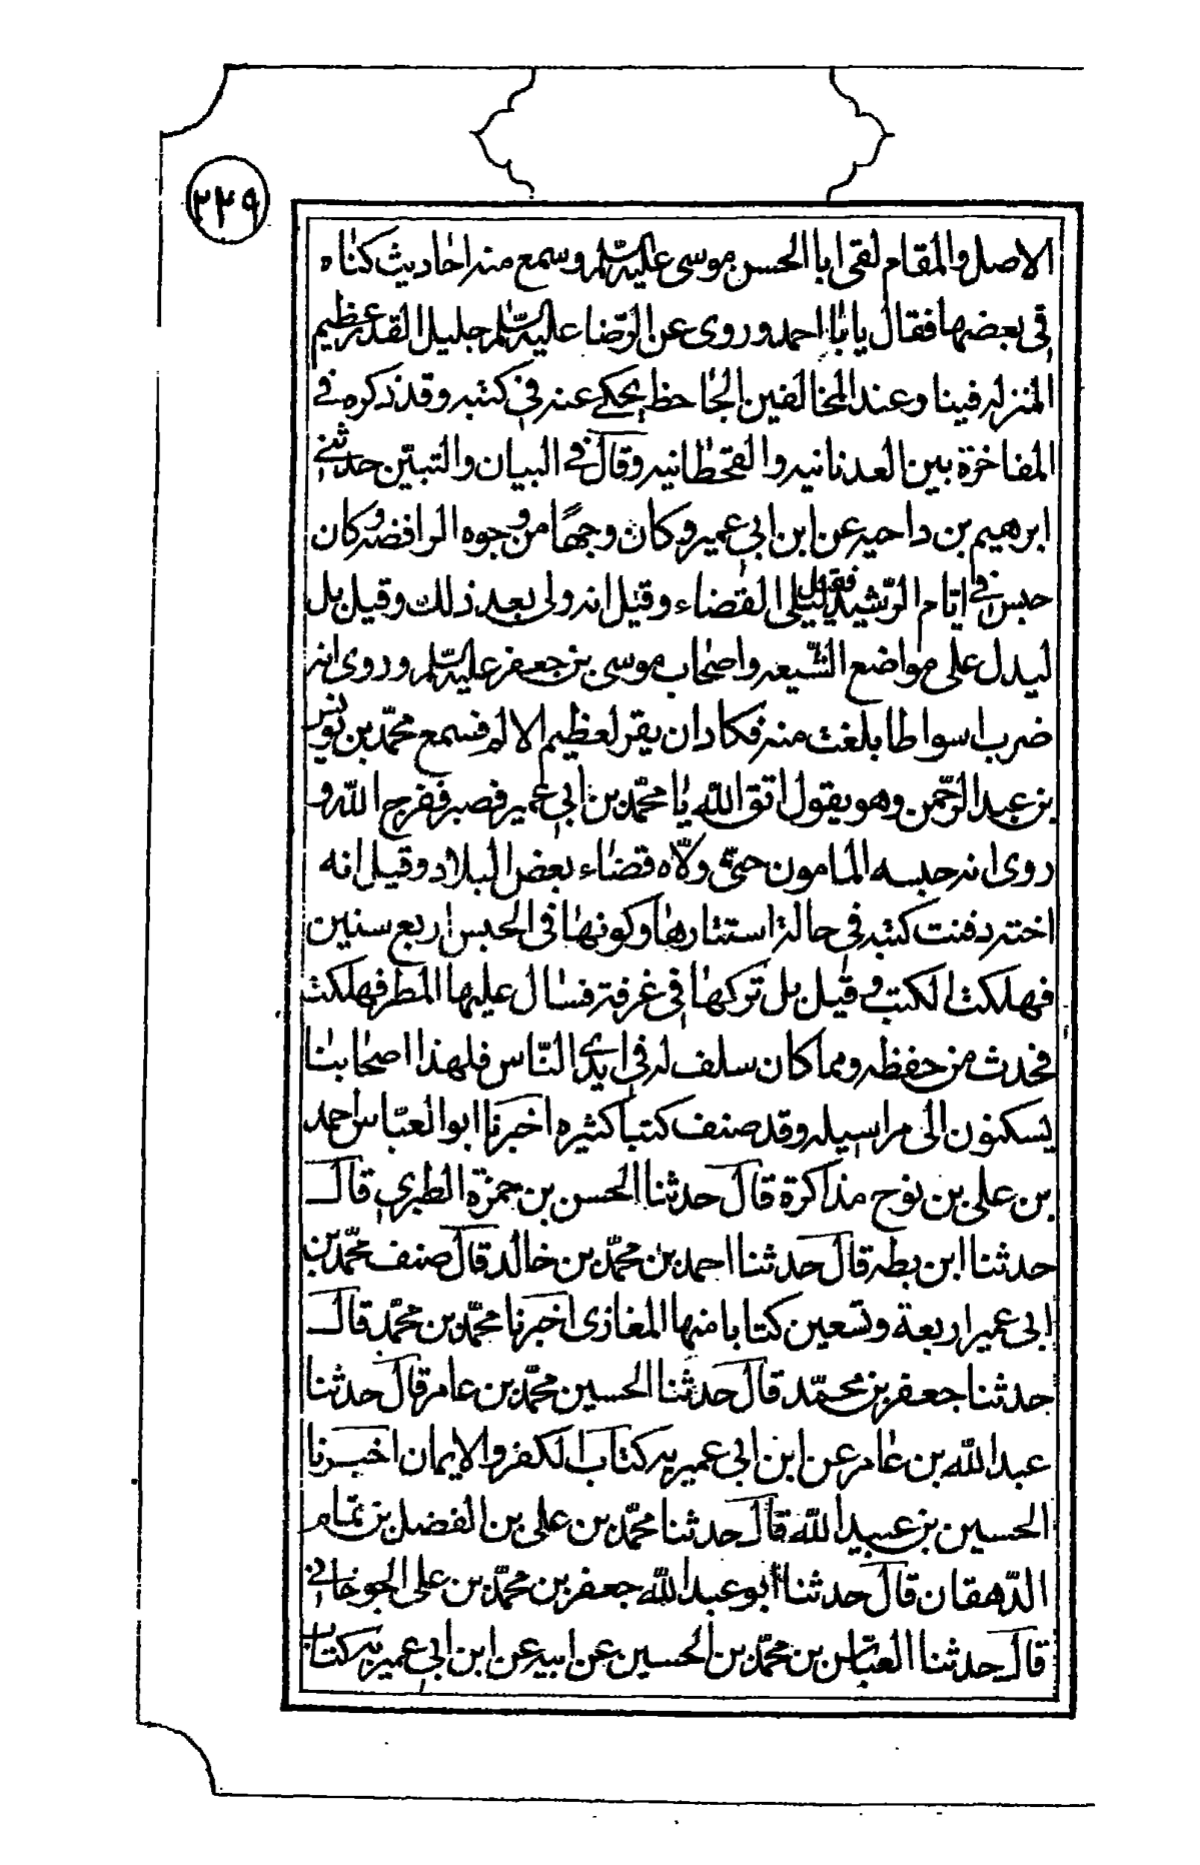 ٢٢٩
الاصل والمقام لقى ابا الحسن موسى عليه السّلم وسمع منه احاديث كناه
فى بعضها فقال يا با احمد وروى عن الرّضا عليه السّلم جليل القدر عظيم
المنزله فينا وعند المخالفين الجاحظ يحكى عنه فى كتبه وقد ذكره فى
المفاخرة بين العدنانيه والقحطانيه وقال فى البيان والتبيّن حدثنى
ابرهيم بن داحيه عن ابن ابى عمير وكان وجهًا من وجوه الرافضه وكان
حبس فى ايّام الرّشيد فقيل ليلى القضاء وقيل انه ولى بعد ذلك وقيل بل
ليدل على مواضع الشّيعه واصحاب موسى بن جعفر عليه السّلم وروى انه
ضرب اسواطا بلغت منه فكاد ان يقر لعظيم الالم فسمع محمّد بن يونس
بن عبد الرّحمن وهو يقول اتق اللّه يا محمّد بن ابى عمير فصبر ففرج اللّه و
روى انه حبسه المامون حتّى ولّاه قضاء بعض البلاد وقيل انه
اخته دفنت كتبه فى حالة استتارها وكونها فى الحبس اربع سنين
فهلكت الكتب وقيل بل تركها فى غرفة فسال عليها المطر فهلكت
فحدث من حفظه ومما كان سلف له فى ايدى النّاس فلهذا اصحابنا
يسكنون الى مراسيله وقد صنف كتبا كثيره اخبرنا ابو العبّاس احمد
بن على بن نوح مذاكرة قال حدثنا الحسن بن حمزة الطبرى قال
حدثنا ابن بطه قال حدثنا احمد بن محمّد بن خالد قال صنف محمّد بن
ابى عمير اربعة وتسعين كتابا منها المغازى اخبرنا محمّد بن محمّد قال
حدثنا جعفر بن محمّد قال حدثنا الحسين محمّد بن عامر قال حدثنا
عبد اللّه بن عامر عن ابن ابى عمير به كتاب الكفر والايمان اخبرنا
الحسين بن عبيد اللّه قال حدثنا محمّد بن على بن الفضل بن تمّام
الدّهقان قال حدثنا ابو عبد اللّه جعفر بن محمّد بن على الجوخانى
قال حدثنا العبّاس بن محمّد بن الحسين عن ابيه عن ابن ابى عمير به كتاب